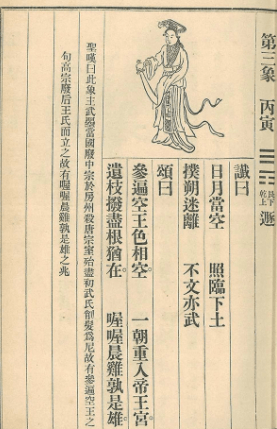 第三象 丙寅 ䷠ 艮下乾上 遯
讖曰
日月當空 照臨下土
撲朔迷離 不文亦武
頌曰
參遍空王色相空。 一朝重入帝王宮。
遺枝撥盡根猶在。 喔喔晨雞孰是雄。
聖嘆曰此象主武曌當國廢中宗於房州殺唐宗室殆盡初武氏削髮為尼故有參遍空王之
句高宗廢后王氏而立之故有喔喔晨雞孰是雄之兆